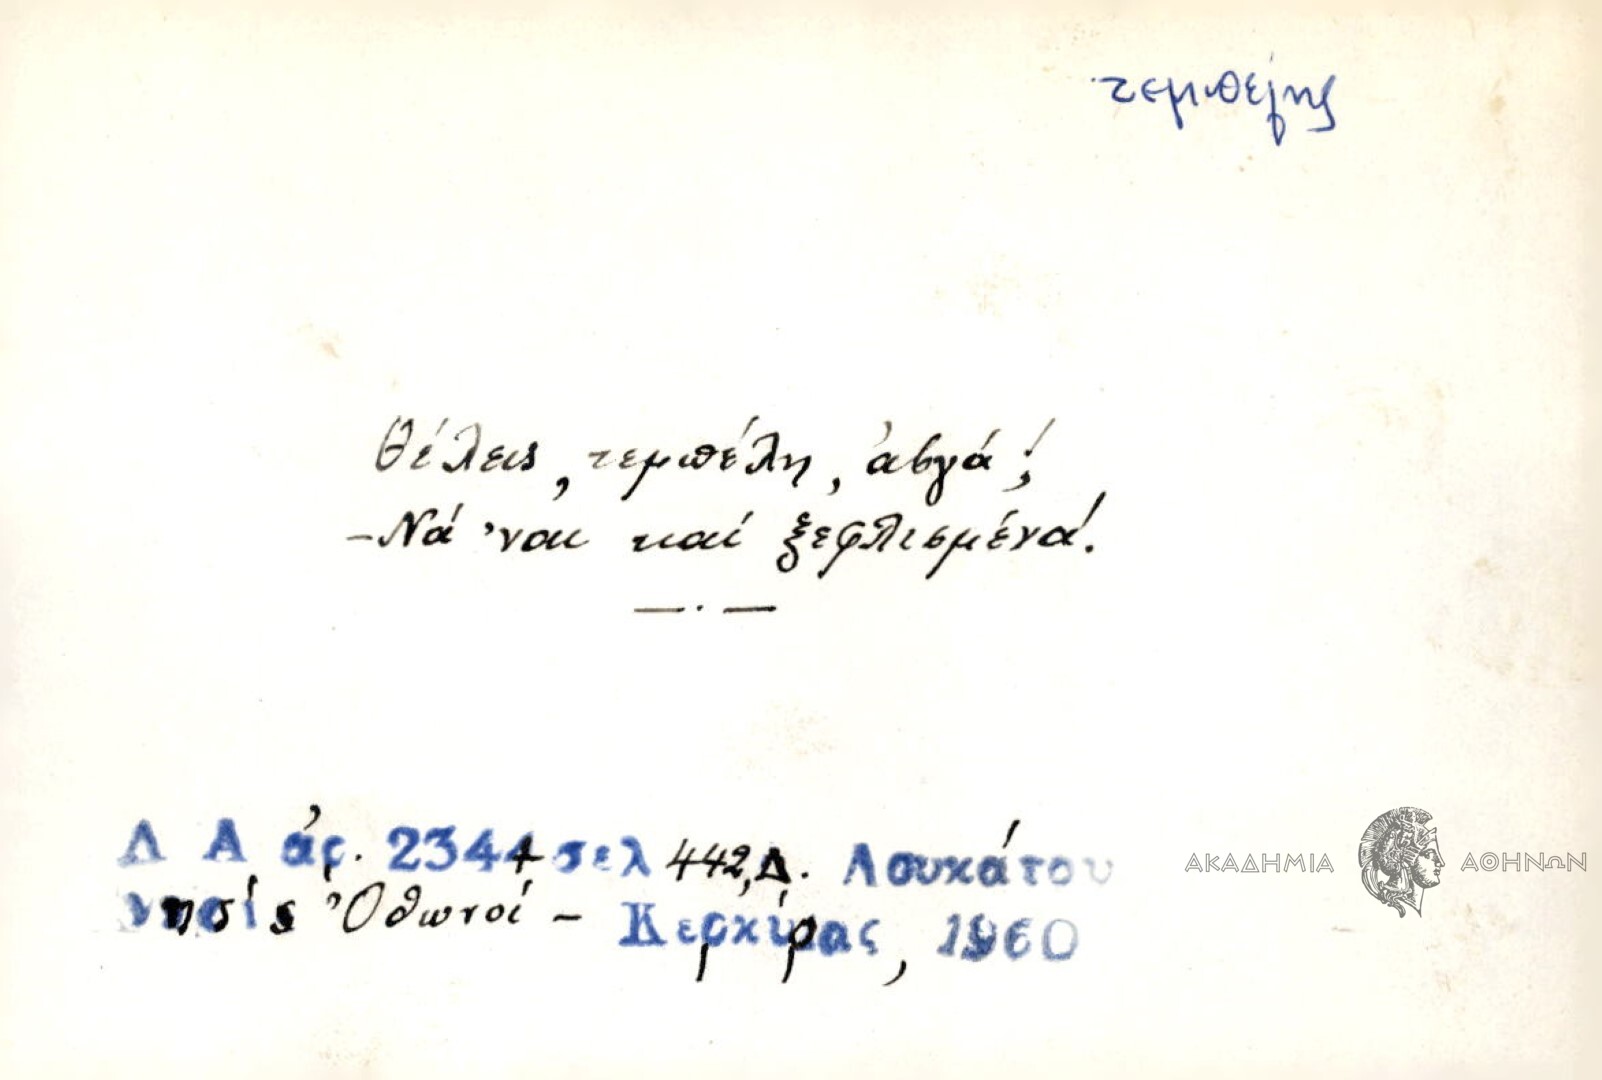 τεμπέλης
Θέλεις, τεμπέλη, ἀβγά;
-Νά 'ναι καί ξεφλισμένα!
Λ Α ἀρ. 2344 σελ 442, Δ. Λουκάτου
νησίς Ὀθωνοί - Κερκύρας, 1960
ΑΚΑΔΗΜΙΑ ΑΘΗΝΩΝ